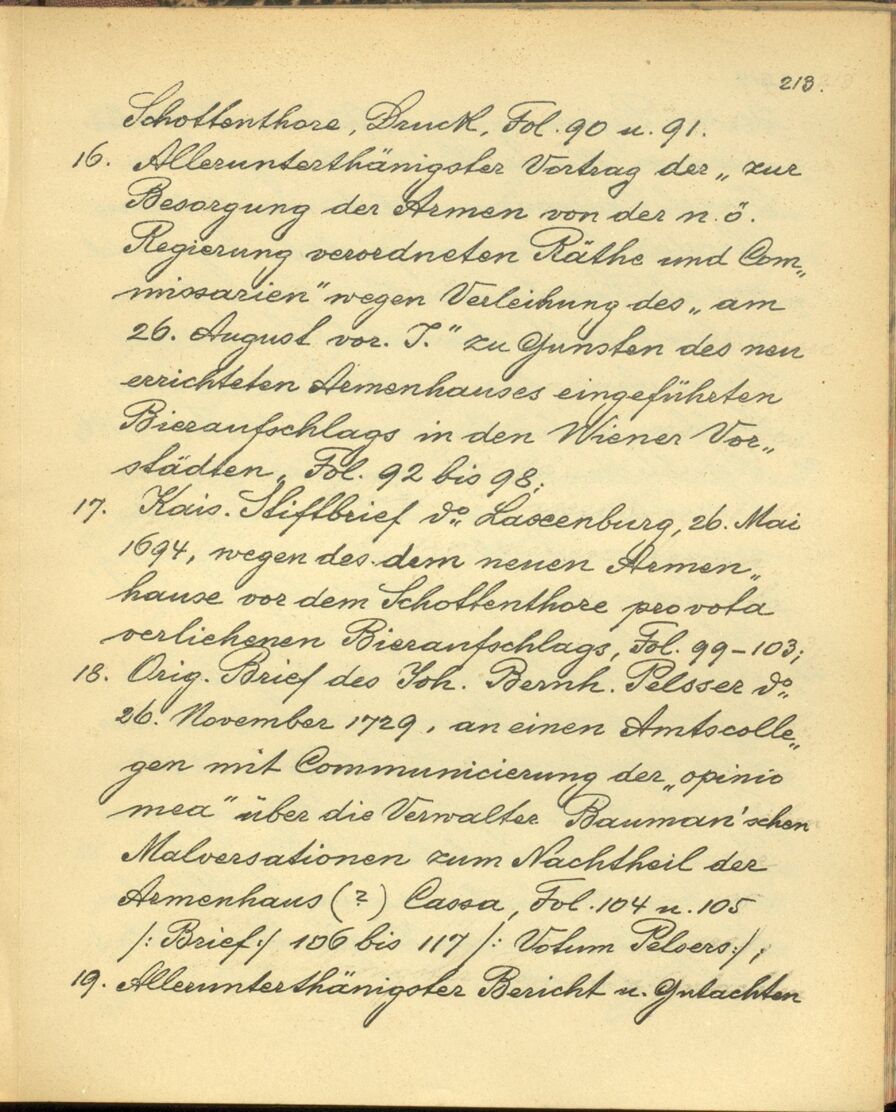 213.
Schottenthore, Druck, Fol. 90 u. 91.
16. Allerunterthänigster Vortrag der „ zur
Besorgung der Armen von der n. ö.
Regierung verordneten Räthe und Com„
missarien" wegen Verleihung des „ am
26. August vor. J." zu Gunsten des neu
errichteten Armenhauses eingeführten
Bieraufschlags in den Wiener Vor„
städten, Fol. 92 bis 98;
17. Kais. Stiftbrief do„ Laxenburg, 26. Mai
1694, wegen des dem neuen Armen„
hause vor dem Schottenthore pro vota
verliehenen Bieraufschlags, Fol. 99-103;
18. Orig. Brief des Joh. Bernh. Pelsser do„
26. November 1729, an einen Amtscolle„
gen mit Communicierung der „opinio
mea" über die Verwalter Bauman'schen
Malversationen zum Nachtheil der
Armenhaus (?) Cassa, Fol. 104 u. 105
/: Brief :/ 106 bis 117 /: Votum Pelsers :/;
19. Allerunterthänigster Bericht u. Gutachten